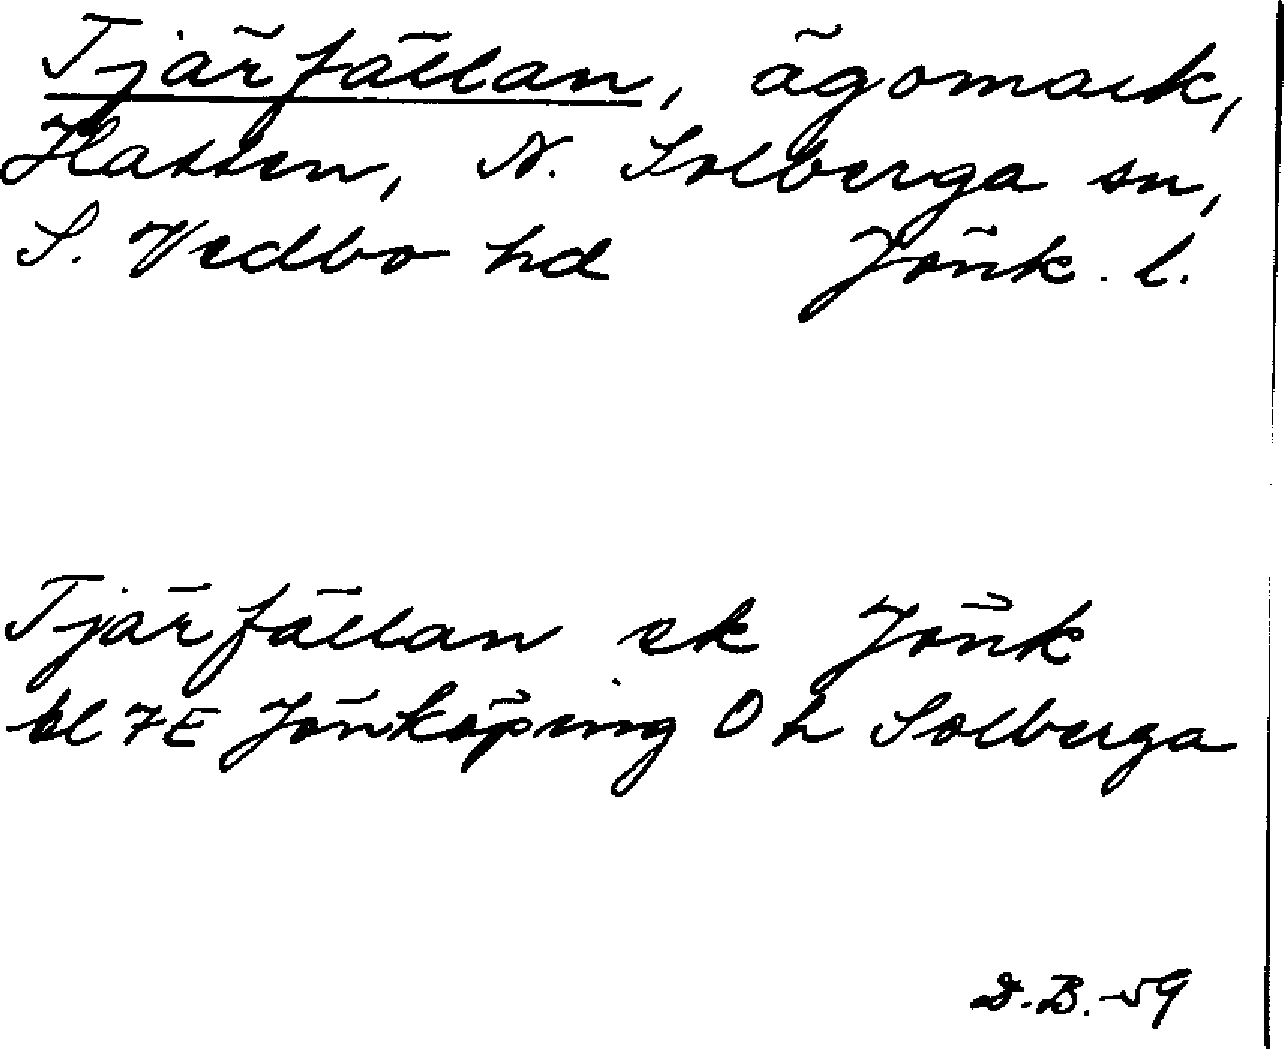 Tjärfällan, ägomark,
Hassen, N. Solberga sn,
S. Vedbo hd Jönk. l.
Tjärfällan ek Jönk
bl 7E Jönköping O h Solberga
D.B. -59